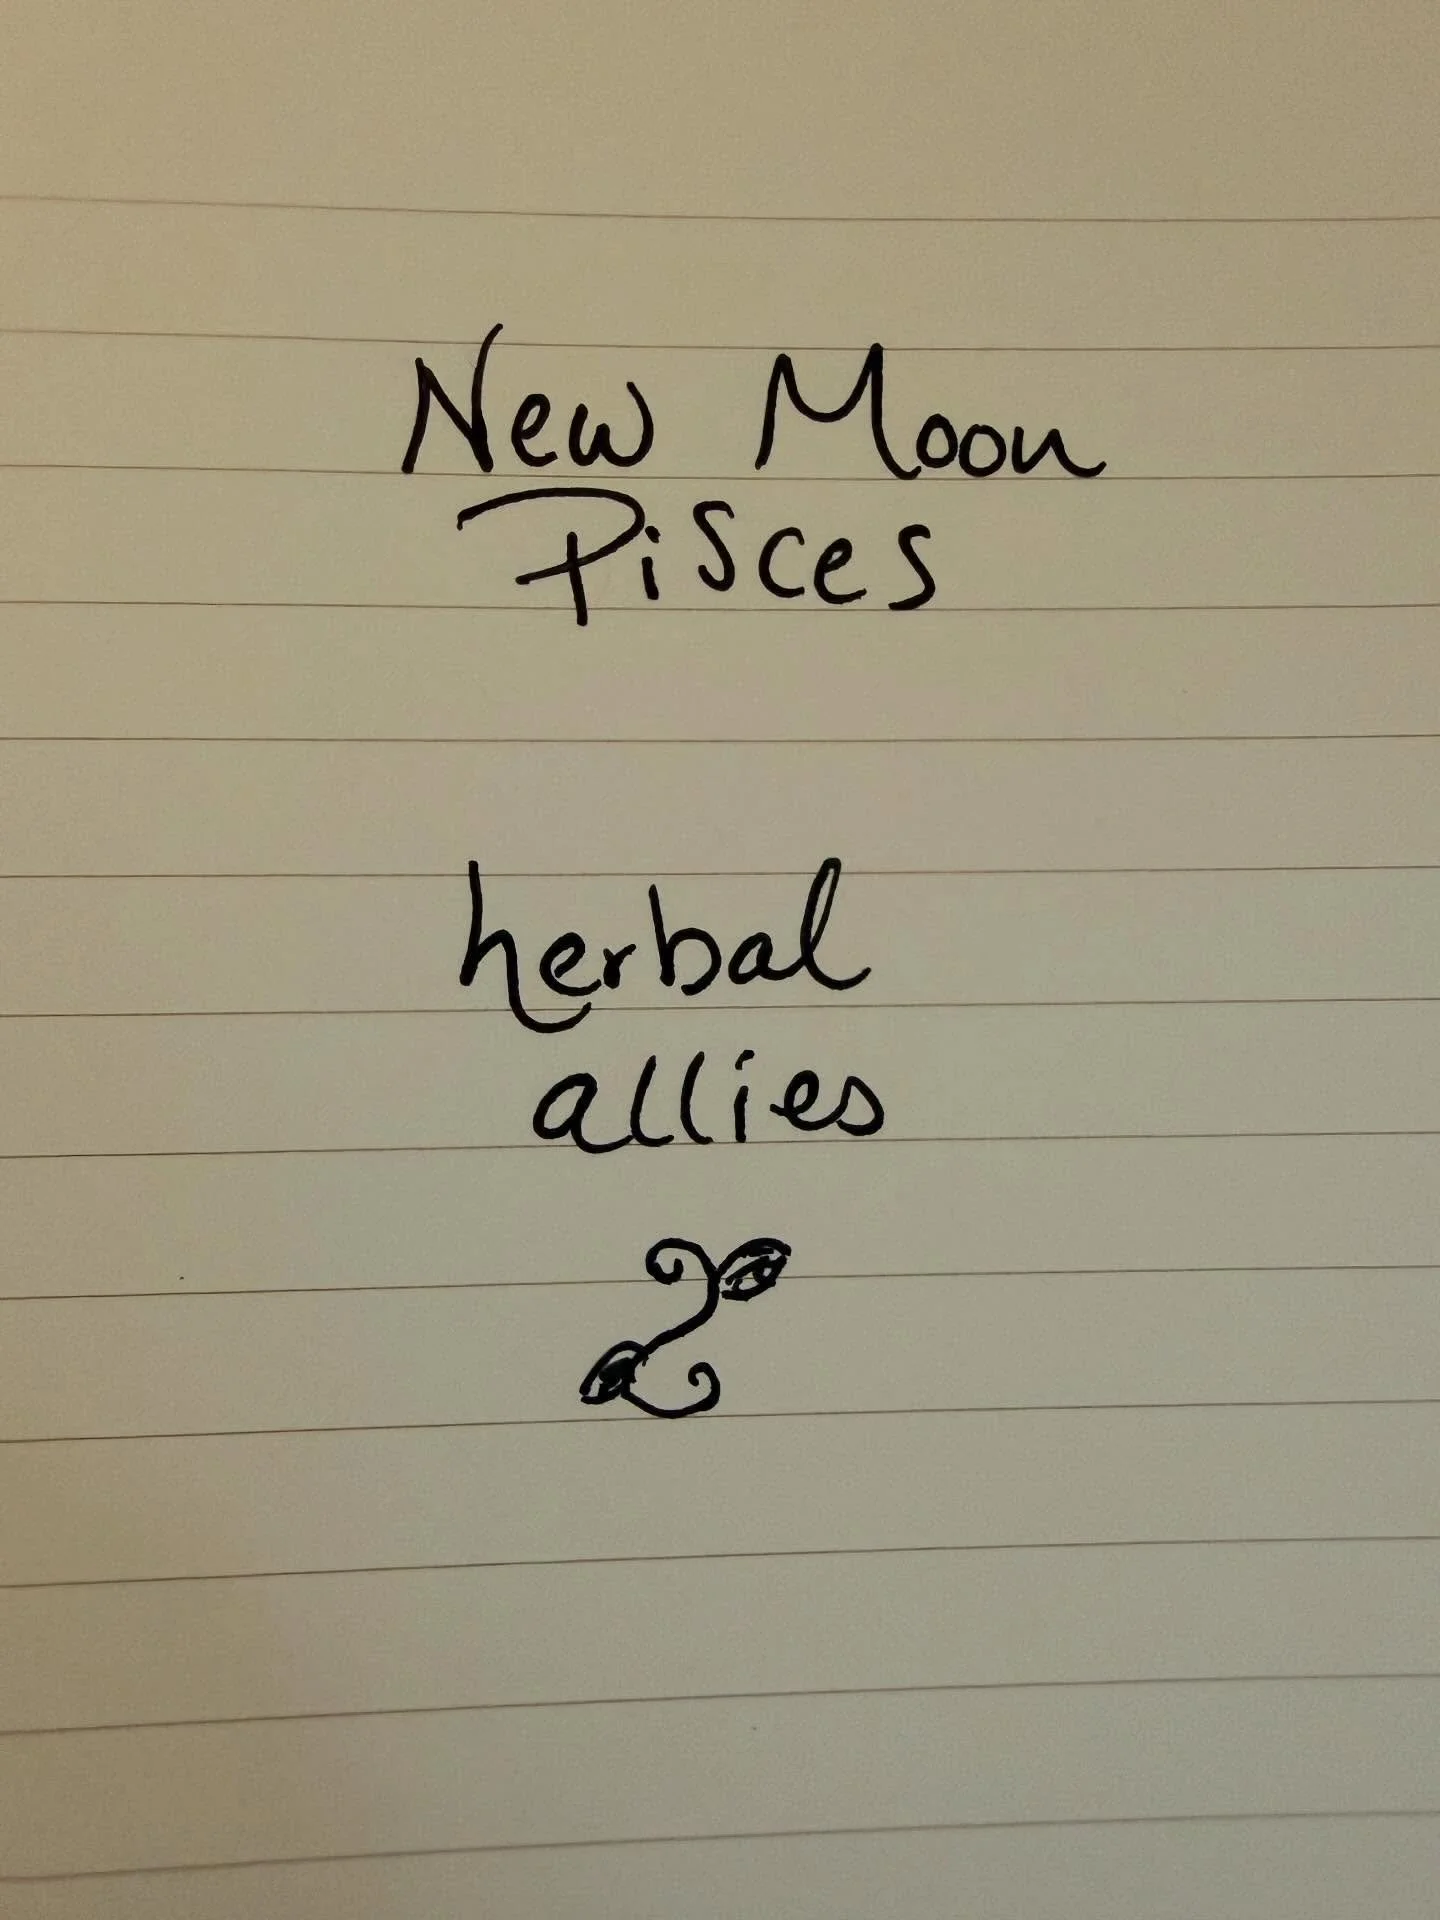 New Moon
Pisces
herbal
allies